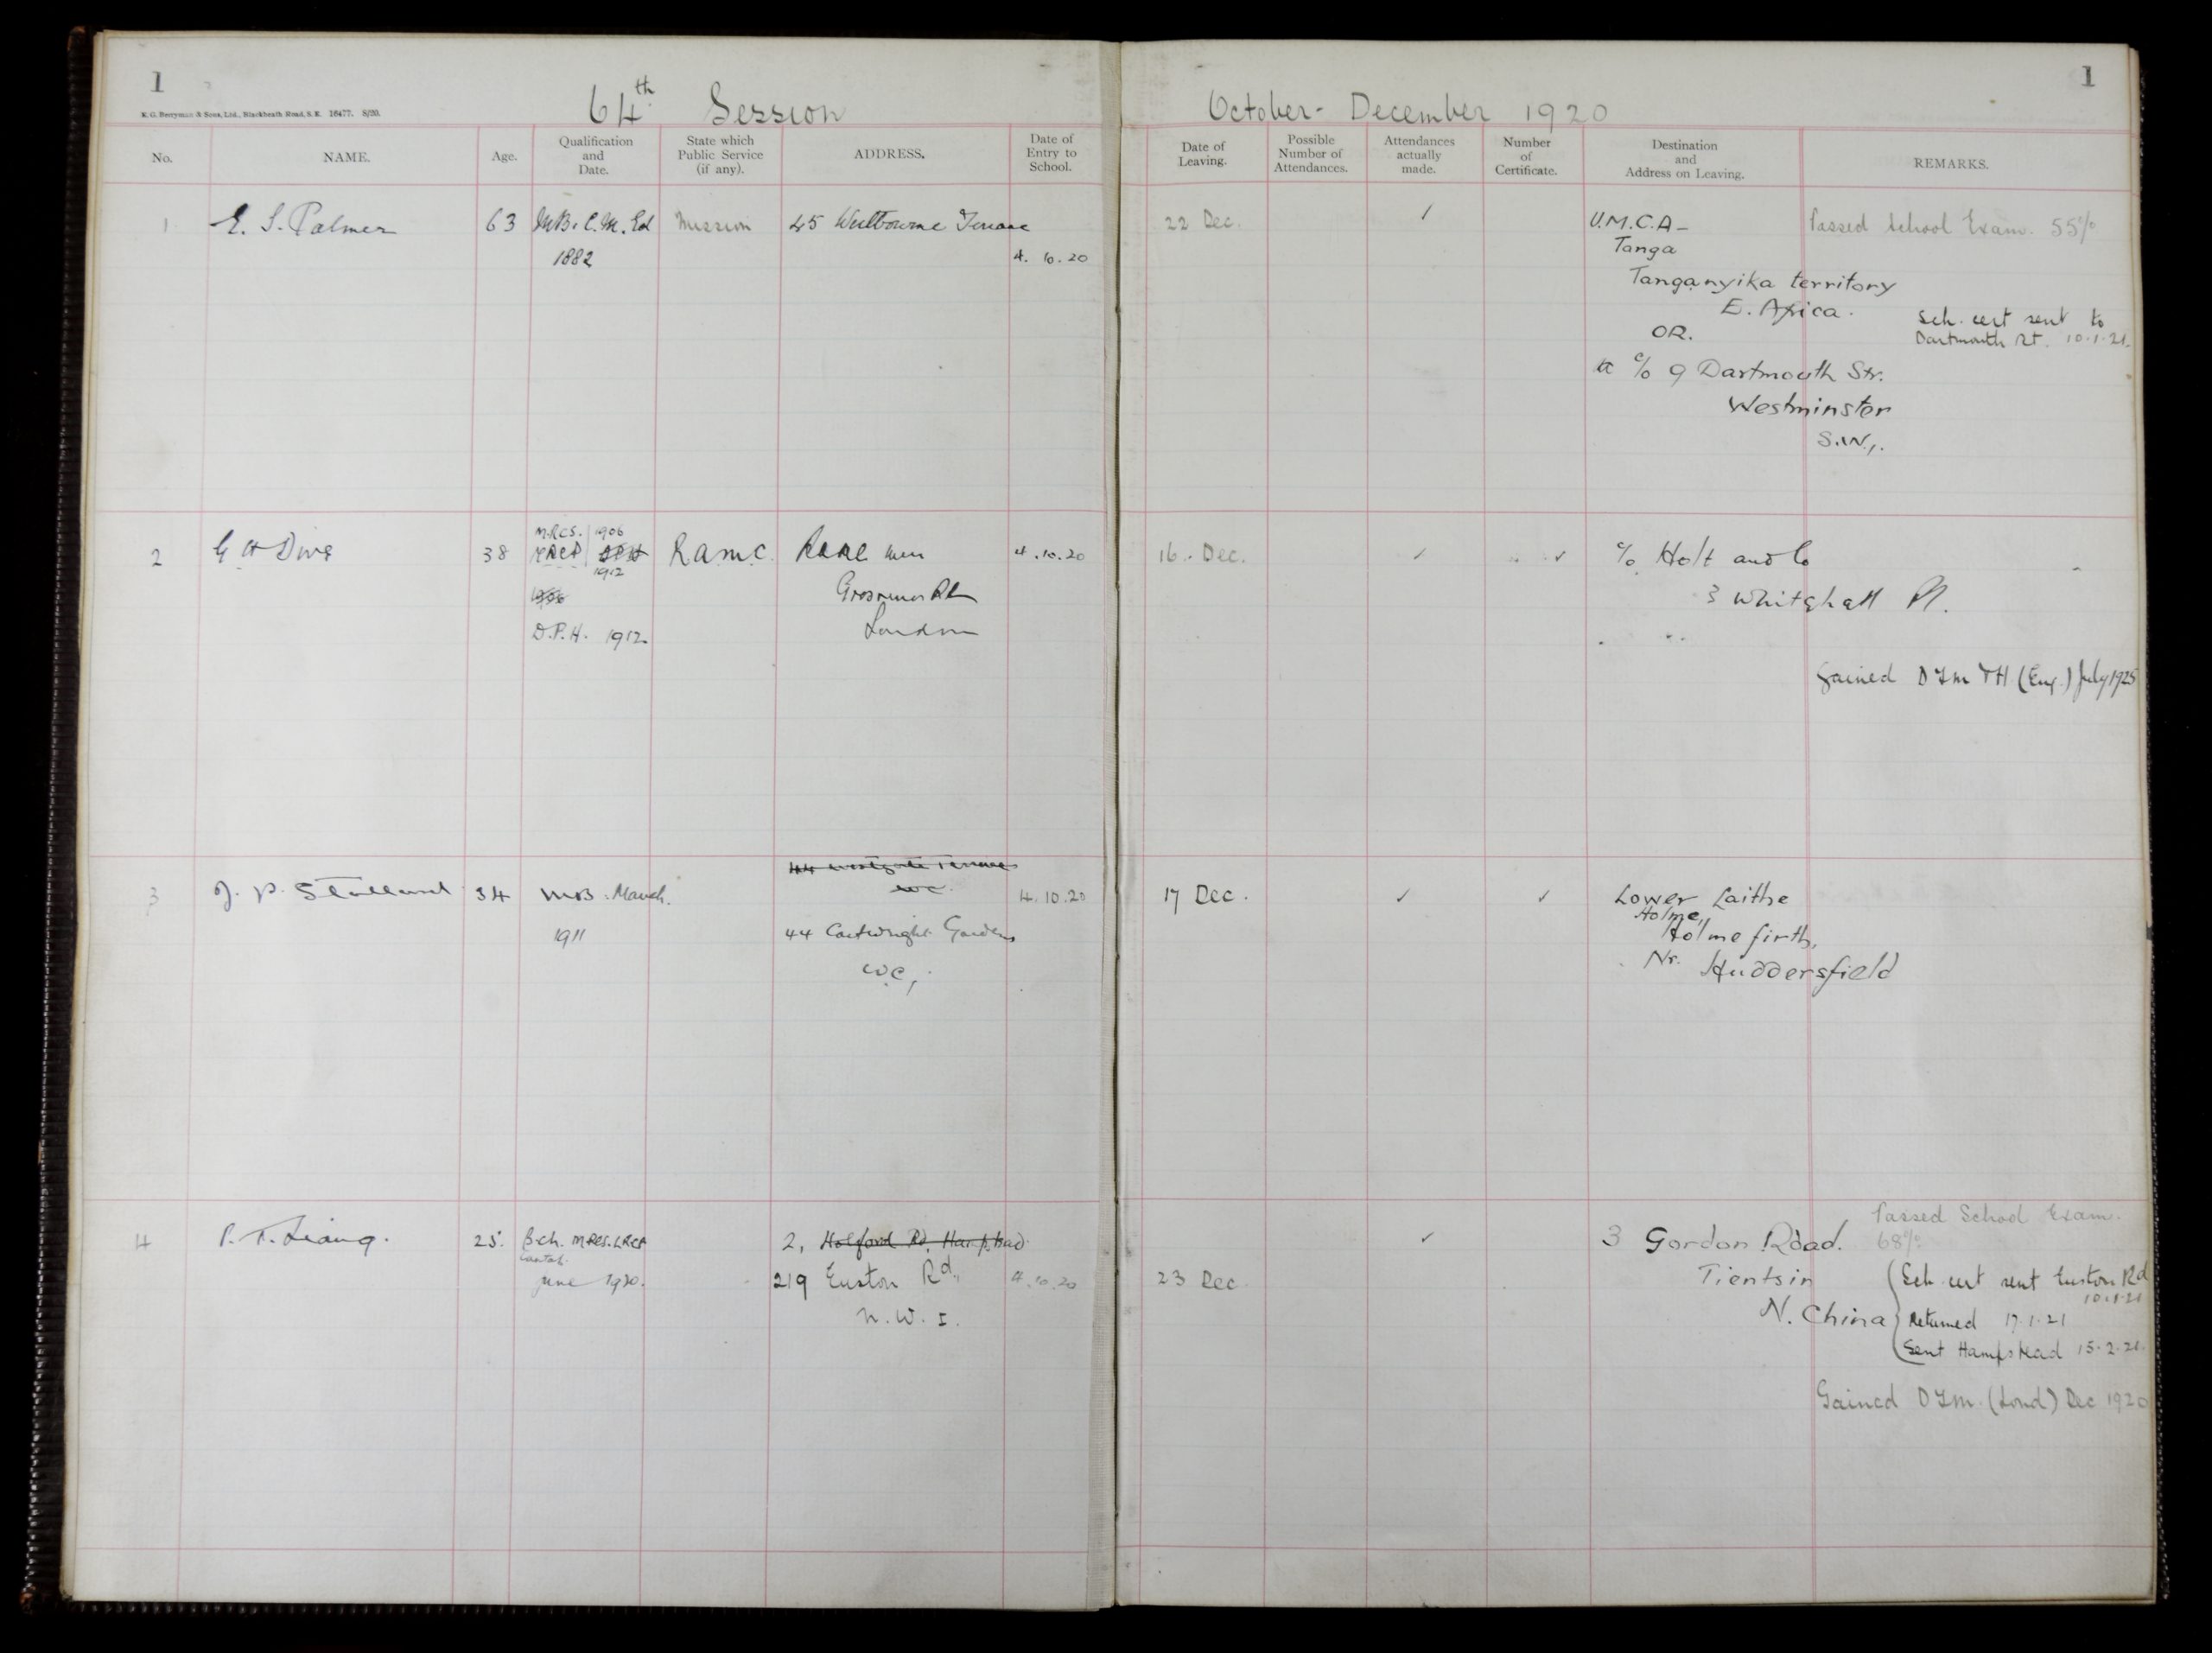 1
K. G. Berryman & Sons, Ltd., Blackheath Road, S.E. 16477. 8/20.
64th Session
No.
NAME.
Age.
Qualification
and
Date.
State which
Public Service
(if any).
ADDRESS.
Date of
Entry to
School.
1
E. S. Palmer
63
M.B. C.M. Ed
1882
Mission
45 Westbourne Terrace
4. 10. 20
2
G H Dive
38
M.R.C.S. 1906
1912
D.P.H. 1912
R.A.M.C.
Grosvenor Rd
London
4.10.20
3
J. P. Stallard
34
M.B. Manch.
1911
W.C.
44 Cartwright Gardens
W.C,
4.10.20
4
P. T. Liang.
25.
B.Ch. M.R.C.S. L.R.C.P
Cantab.
June 1920.
2, Holford Rd. Hampstead
219 Euston Rd.,
N.W.1.
4.10.20
October - December 1920
1
Date of
Leaving.
Possible
Number of
Attendances.
Attendances
actually
made.
Number
of
Certificate.
Destination
and
Address on Leaving.
REMARKS.
22 Dec.
U.M.C.A -
Tanga
Tanganyika territory
E. Africa.
OR.
c/o 9 Dartmouth Str.
Westminster
S.W.1.
Passed School Exam. 55%
Sch. cert sent to
Dartmouth St. 10.1.21.
16. Dec.
c/o Holt and Co
3 Whitehall Pl.
Gained D T M & H (Eng.) July 1925
17 Dec.
Lower Laithe
Holme,
Holmefirth,
Nr. Huddersfield
23 Dec
3 Gordon Road.
Tientsin
N. China
Passed School Exam.
68%
Sch. cert sent Euston Rd
10.1.21
Returned 17.1.21
Sent Hampstead 15.2.21.
Gained D T M. (Lond) Dec 1920